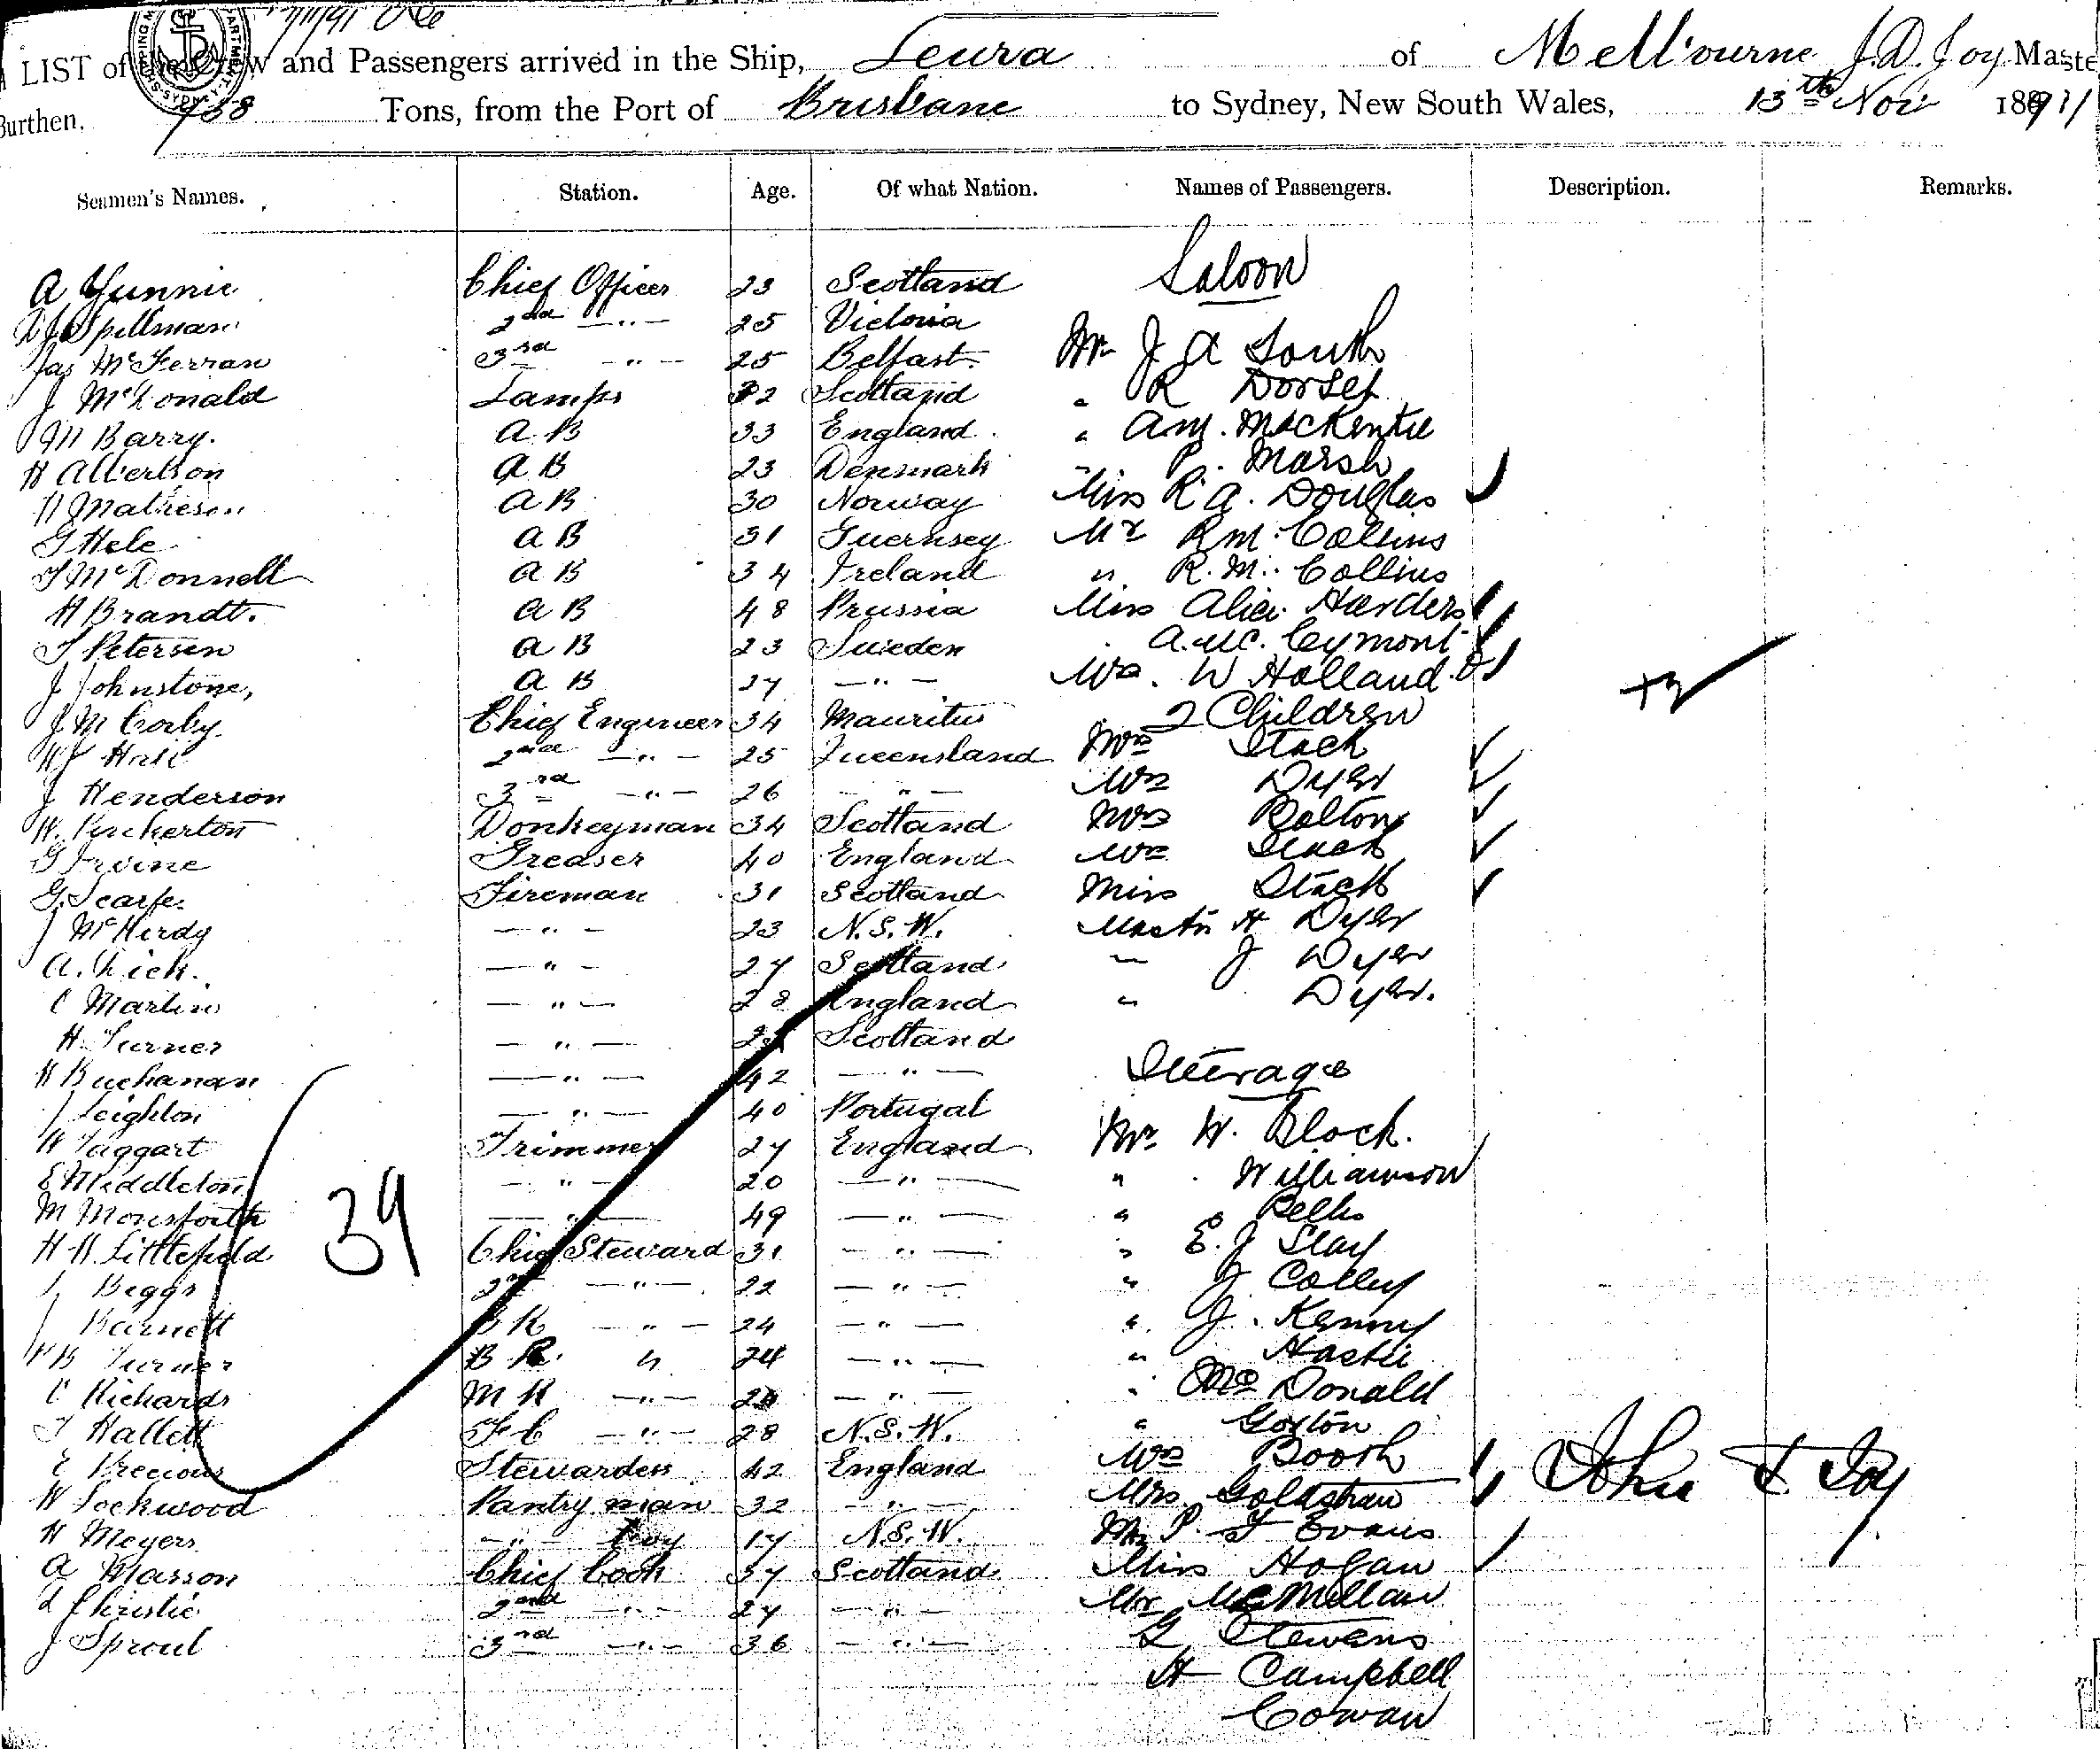 LIST of the Crew and Passengers arrived in the Ship, Leura of Melbourne J. D. Joy Maste
Burthen, 738 Tons, from the Port of Brisbane to Sydney, New South Wales, 13th Nov 1891
Seamen's Names. Station. Age. Of what Nation. Names of Passengers. Description. Remarks.
Saloon
A Gunnie Chief Officer 23 Scotland
Spillman 2nd —"— 25 Victoria
Jas McFerran 3rd " — 25 Belfast Mr J A South
J McDonald Lamps 32 Scotland " R Dorset
Barry. A B 33 England " A M. MacKenzie
H Albertson A B 23 Denmark " P. Marsh
N Mathesen A B 30 Norway Miss R A. Douglas
G Hele A B 31 Guernsey Mr R M. Collins
T McDonnell A B 34 Ireland " R. M. Collins
H Brandt. A B 48 Prussia Miss Alice Harders
T Petersen A B 23 Sweden
J Johnstone, A B 27 —"— Mrs. W Holland
J M Corby Chief Engineer 34 Mauritus 2 Children
W J Hall 2nd —"— 25 Queensland Mrs Stack
J Henderson 3rd —"— 26 —"— Mrs Dyer
W. Pinkerton Donkeyman 34 Scotland Mrs Bolton
G Irvine Greaser 40 England Mrs Stack
G. Scarfe. Fireman 31 Scotland Miss Stack
J McHirdy —"— 23 N. S. W. Master H Dyer
A. —"— 27 Scotland — J Dyer
C Martin —"— 28 England " Dyer.
H. Turner —"— Scotland
H Buchanan —"— 42 —"— Steerage
J Leighton —"— 40 Portugal Mr W. Block.
W Taggart Trimmer 27 England
E Middleton —"— 20 —"— " Williamson
M Monsforth —"— 49 —"— " Pells
H H Littlefield Chief Steward 31 —"— " E. J Slay
J Beggs 2nd —"— 22 —"— " J Colley
J Barnett B R —"— 24 —"— " J. Kenny
Turner B R. " 24 —"— " Hastie
C Richards M R —"— 20 —"— " McDonald
T Hallett F C —"— 28 N. S. W. " Goxton
E Precious Stewardess 42 England Mrs Booth
W Lockwood Pantry man 32 —"— Mrs Goldstraw
H Meyers —"— boy 17 N. S. W. Mr P. T Evans
A Masson Chief Cook 37 Scotland Miss Hogan
Christie 2nd —"— 27 —"— Mr McMillan
J Sproul 3rd —"— 36 —"— G Stewens
H Campbell
Cowan
39
John D Joy